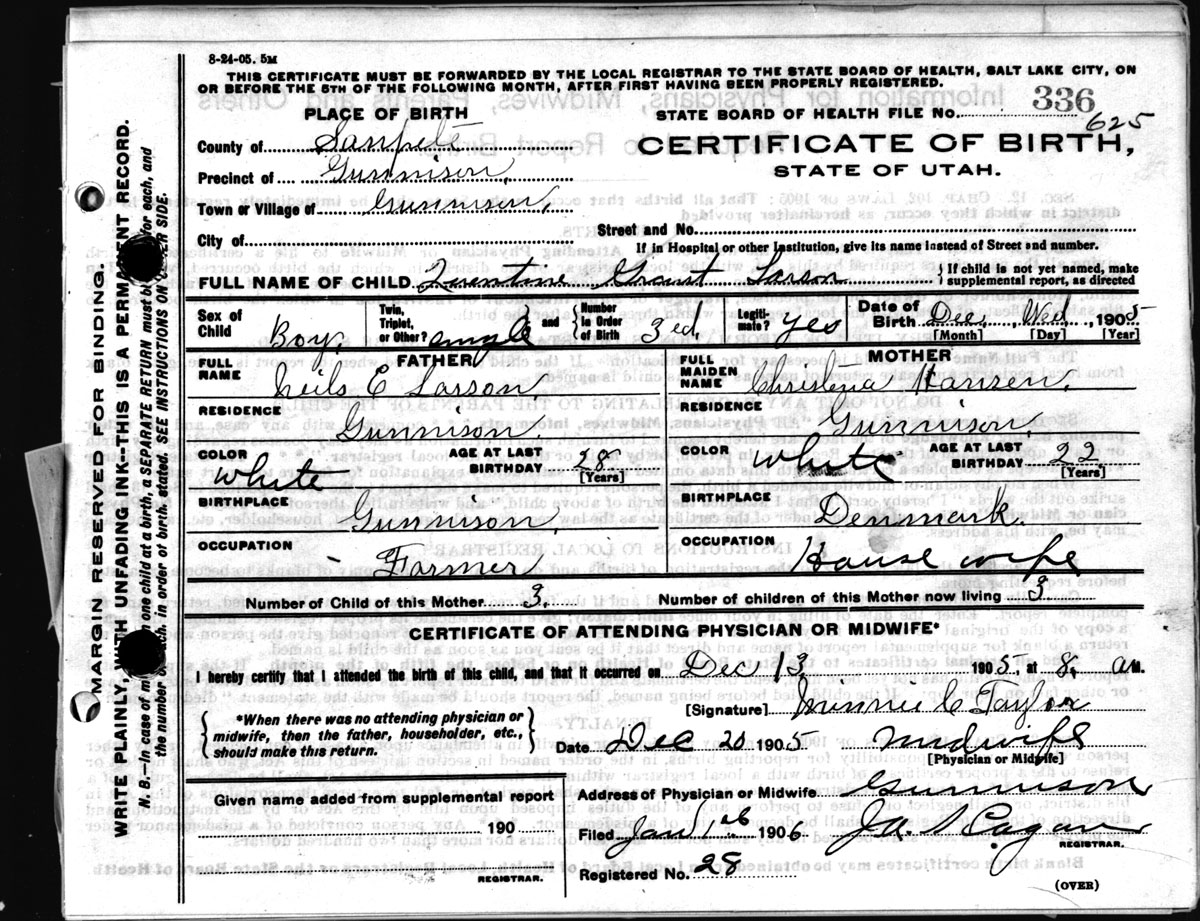 8-24-05. 5M
THIS CERTIFICATE MUST BE FORWARDED BY THE LOCAL REGISTRAR TO THE STATE BOARD OF HEALTH, SALT LAKE CITY, ON
OR BEFORE THE 5TH OF THE FOLLOWING MONTH, AFTER FIRST HAVING BEEN PROPERLY REGISTERED.
PLACE OF BIRTH
STATE BOARD OF HEALTH FILE No. 336
625
County of Sanpete
CERTIFICATE OF BIRTH,
Precinct of Gunnison,
STATE OF UTAH.
Town or Village of Gunnison,
City of Street and No.
If in Hospital or other Institution, give its name instead of Street and number.
FULL NAME OF CHILD Grant Larson { If child is not yet named, make supplemental report, as directed
Sex of Child Boy. Twin, Triplet, or Other? single and { Number in Order of Birth 3ed, Legiti-mate? yes Date of Birth Dec, Wed, 1905
[Month] [Day] [Year]
FATHER
FULL NAME Neils E Larson,
RESIDENCE Gunnison,
COLOR White AGE AT LAST BIRTHDAY 28 [Years]
BIRTHPLACE Gunnison,
OCCUPATION Farmer
MOTHER
FULL MAIDEN NAME Christena Hansen,
RESIDENCE Gunnison,
COLOR White AGE AT LAST BIRTHDAY 22 [Years]
BIRTHPLACE Denmark.
OCCUPATION House wife
Number of Child of this Mother 3. Number of children of this Mother now living 3
CERTIFICATE OF ATTENDING PHYSICIAN OR MIDWIFE*
I hereby certify that I attended the birth of this child, and that it occurred on Dec 13 1905, at 8. AM.
[Signature] Minnie C Taylor
{ *When there was no attending physician or midwife, then the father, householder, etc., should make this return. }
Date Dec 20 1905 Midwife
[Physician or Midwife]
Given name added from supplemental report
190
REGISTRAR.
Address of Physician or Midwife Gunnison
Filed Jan 1st 1906
REGISTRAR.
Registered No. 28
(OVER)
MARGIN RESERVED FOR BINDING.
WRITE PLAINLY, WITH UNFADING INK--THIS IS A PERMANENT RECORD.
N. B.--In case of one child at a birth, a SEPARATE RETURN must be for each, and
the number each, in order of birth, stated. See INSTRUCTIONS ON SIDE.